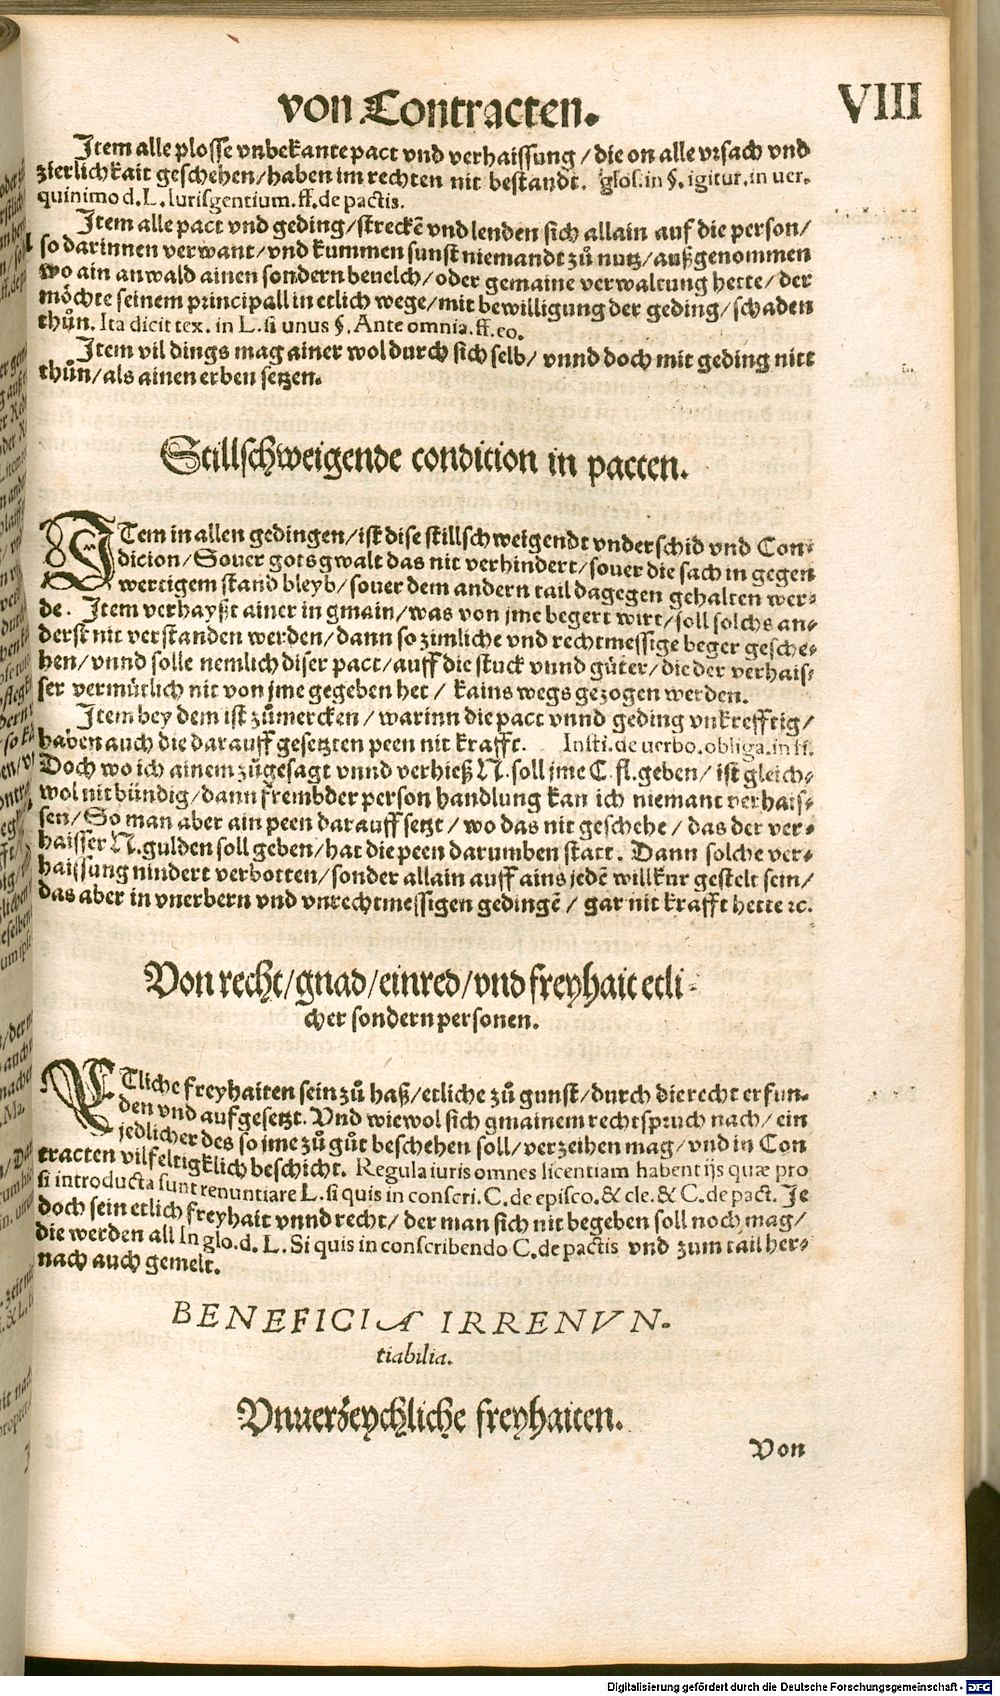 von Contracten. VIII
Item alle plosse vnbekante pact vnd verhaissung / die on alle vrsach vnd
zierlichkait geschehen / haben im rechten nit bestandt. glos. in §. igitur. in uer.
quinimo d. L. Iurisgentium. ff. de pactis.
Item alle pact vnd geding / streckẽ vnd lenden sich allain auf die person /
so darinnen verwant / vnd kummen sunst niemandt zů nutz / außgenommen
wo ain anwald ainen sondern beuelch / oder gemaine verwaltung hette / der
möchte seinem principall in etlich wege / mit bewilligung der geding / schaden
thůn. Ita dicit tex. in L. si unus §. Ante omnia. ff. eo.
Item vil dings mag ainer wol durch sich selb / vnnd doch mit geding nitt
thůn / als ainen erben setzen.
Stillschweigende condition in pacten.
ITem in allen gedingen / ist dise stillschweigendt vnderschid vnd Con-
dicion / Souer gots gwalt das nit verhindert / souer die sach in gegen
wertigem stand bleyb / souer dem andern tail dagegen gehalten wer-
de. Item verhayßt ainer in gmain / was von jme begert wirt / soll solchs an-
derst nit verstanden werden / dann so zimliche vnd rechtmessige beger gesche-
hen / vnnd solle nemlich diser pact / auff die stuck vnnd güter / die der verhais-
ser vermůtlich nit von jme gegeben het / kains wegs gezogen werden.
Item bey dem ist zůmercken / warinn die pact vnnd geding vnkrefftig /
haben auch die darauff gesetzten peen nit krafft. Insti. de uerbo. obliga. in ff.
Doch wo ich ainem zůgesagt vnnd verhieß N. soll jme C. fl. geben / ist gleich-
wol nit bündig / dann frembder person handlung kan ich niemant verhais-
sen / So man aber ain peen darauff setzt / wo das nit geschehe / das der ver-
haisser N. gulden soll geben / hat die peen darumben statt. Dann solche ver-
haissung nindert verbotten / sonder allain auff ains jedẽ willkur gestelt sein /
das aber in vnerbern vnd vnrechtmessigen gedingẽ / gar nit krafft hette ꝛc.
Von recht / gnad / einred / vnd freyhait etli-
cher sondern personen.
ETliche freyhaiten sein zů haß / etliche zů gunst / durch die recht erfun-
den vnd aufgesetzt. Vnd wiewol sich gmainem rechtspruch nach / ein
jedlicher des so jme zů gůt beschehen soll / verzeihen mag / vnd in Con
tracten vilfeltigklich beschicht. Regula iuris omnes licentiam habent ijs quæ pro
si introducta sunt renuntiare L. si quis in conscri. C. de episco. & cle. & C. de pact. Je
doch sein etlich freyhait vnnd recht / der man sich nit begeben soll noch mag /
die werden all In glo. d. L. Si quis in conscribendo C. de pactis vnd zum tail her-
nach auch gemelt.
BENEFICIA IRRENVN-
tiabilia.
Vnuerzeychliche freyhaiten.
Von
Digitalisierung gefördert durch die Deutsche Forschungsgemeinschaft - DFG